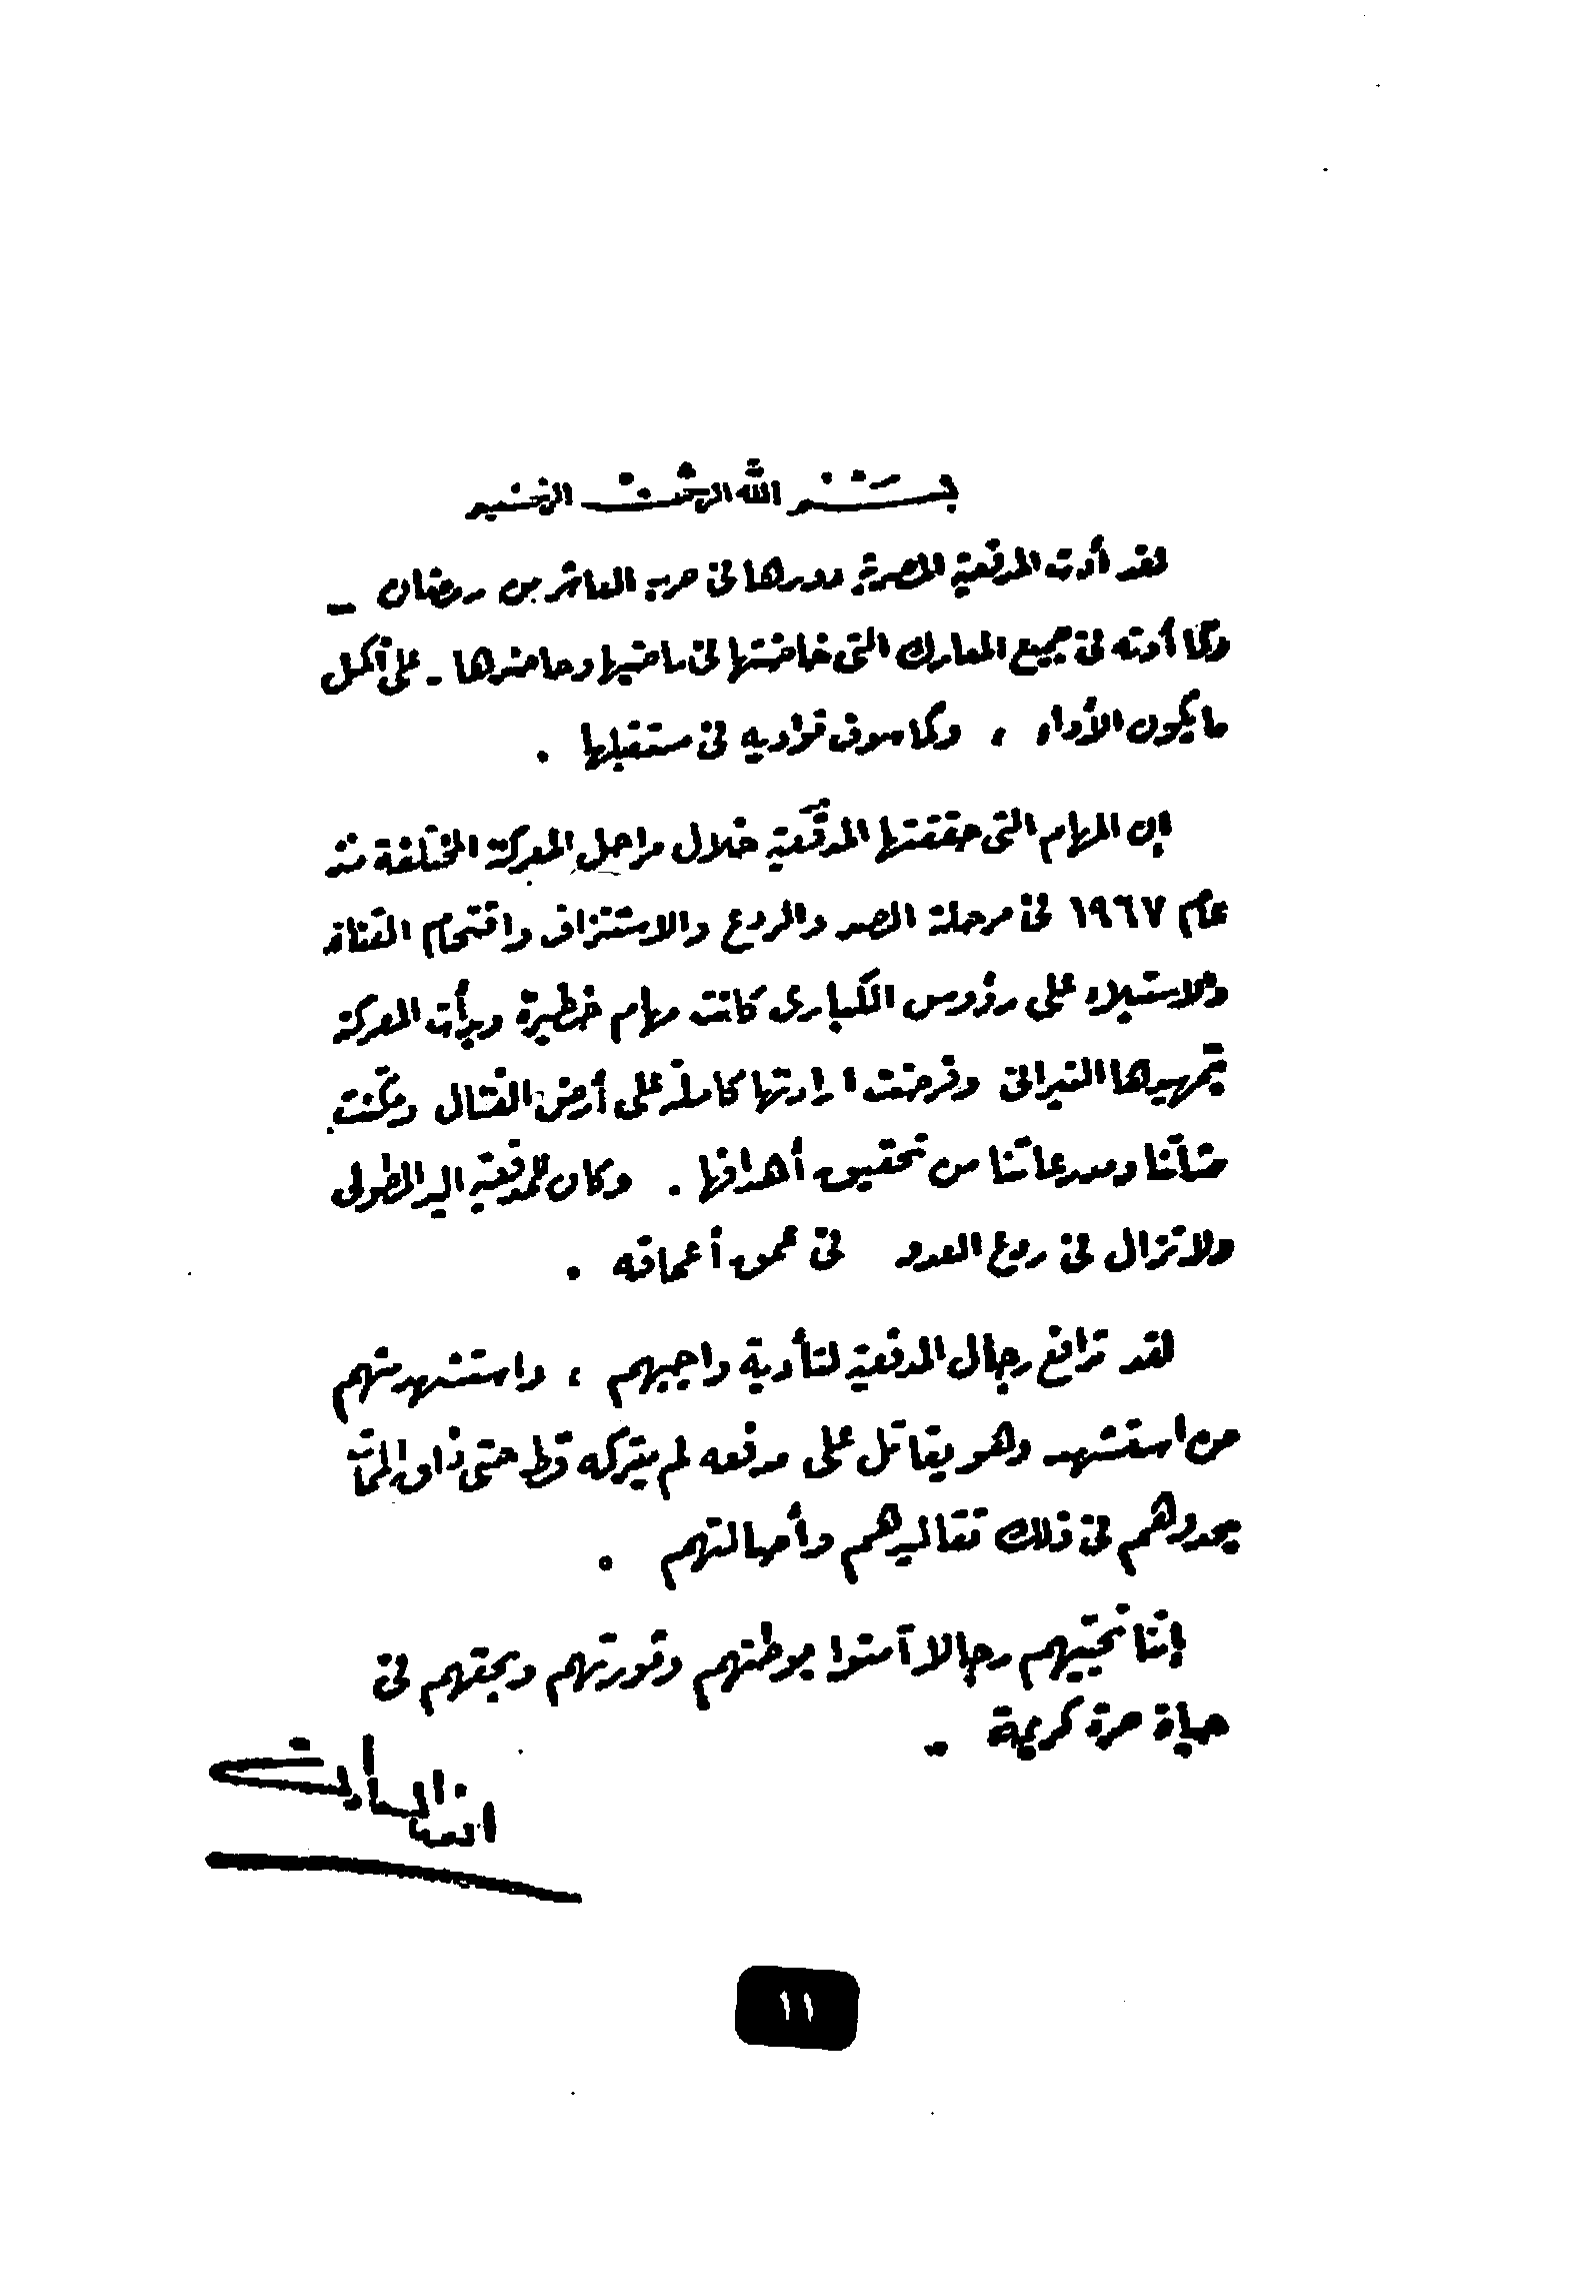 بسم الله الرحمن الرحيم
لقد أدت المدفعية المصرية دورها فى حرب العاشر من رمضان -
وكما أدته فى جميع المعارك التى خاضتها فى ماضيها وحاضرها - على أكمل
ما يكون الأداء ، وكما سوف تؤديه فى مستقبلها .
إن المهام التى حققتها المدفعية خلال مراحل المعركة المختلفة منذ
عام ١٩٦٧ فى مرحلة الصد والردع والاستنزاف واقتحام القناة
والاستيلاء على رؤوس الكبارى كانت مهام خطيرة وبدأت المعركة
بتمهيدها النيرانى وفرضت ارادتها كاملة على أرض القتال ومكنت
مشاتنا ومدرعاتنا من تحقيق أهدافها . وكان للمدفعية اليد الطولى
ولا تزال فى ردع العدو فى عمق أعماقه .
لقد تدافع رجال المدفعية لتأدية واجبهم ، واستشهد منهم
من استشهد وهو يقاتل على مدفعه لم يتركه قط حتى ذاق الممات
يحدوهم فى ذلك تقاليدهم وأصالتهم .
إننا نحييهم رجالا آمنوا بوطنهم وثورتهم وبحقهم فى
حياة حرة كريمة -
انور السادات
١١